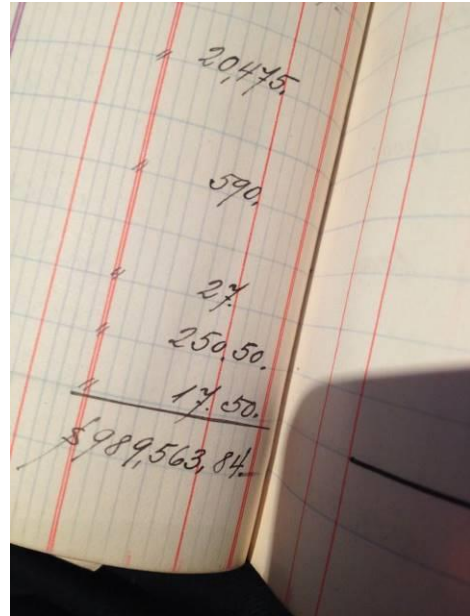 " 20,475.
" 590.
" 27.
" 250.50.
" 17.50.
$989,563,84.